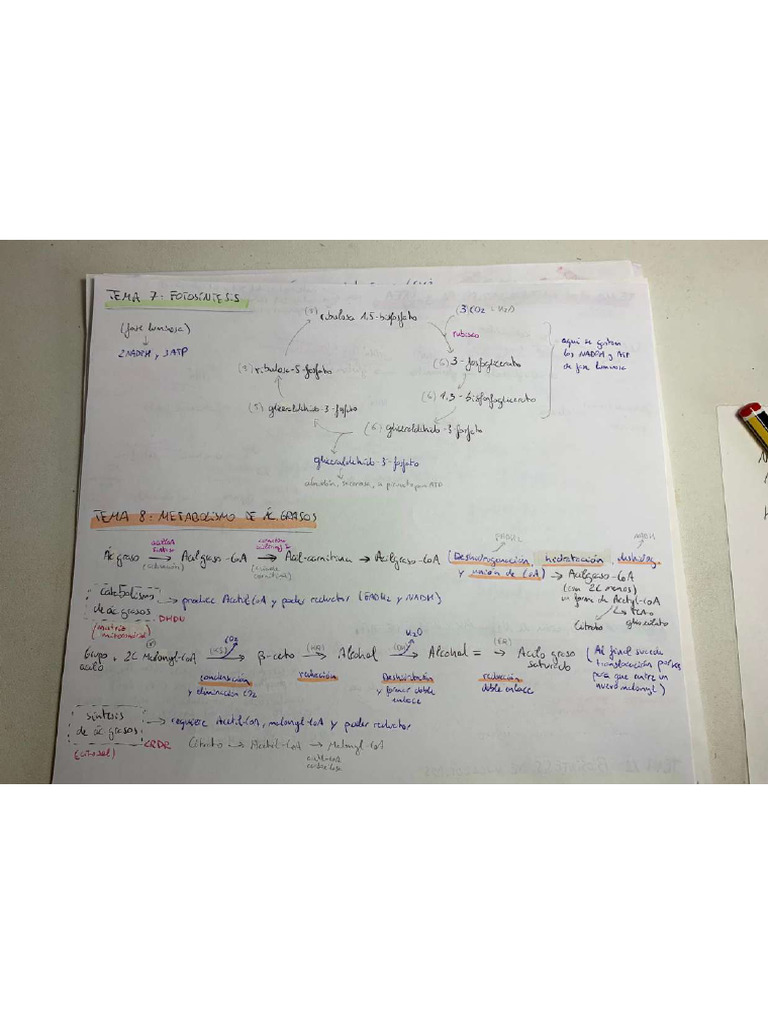 TEMA 7: FOTOSÍNTESIS
(fase luminosa)
2NADPH y 3ATP
(3) ribulosa 1,5-bisfosfato
(3 CO2 + H2O)
rubisco
(3) ribulosa-5-fosfato
(6) 3-fosfoglicerato
(5) gliceraldehído-3-fosfato
(6) 1,3-bisfosfoglicerato
(6) gliceraldehído-3-fosfato
aquí se gastan
los NADPH y ATP
de fase luminosa
gliceraldehído-3-fosfato
almidón, sacarosa, o piruvato para ATP
TEMA 8: METABOLISMO DE ÁC. GRASOS
FADH2
NADH
Ác graso → Acil graso-CoA → Acil-carnitina → Acil graso-CoA (Deshidrogenación, hidratación, deshidrog.
(activación)
y unión de CoA) → Acil graso-CoA
(con 2C menos)
en forma de Acetyl-CoA
→ TCA
Citrato glioxilato
catabolismo
de ác grasos
→ produce Acetil-CoA y poder reductor (FADH2 y NADH)
DHDU
(matriz
mitocondrial)
CO2
H2O
Grupo
acilo
+ 2C Malonyl-CoA → β-ceto → Alcohol → Alcohol = → Acilo graso
saturado
(KS)
(KR)
(DH)
(ER)
condensación
y eliminación CO2
reducción
Deshidratación
y formar doble
enlace
reducción
doble enlace
(Al final sucede
translocación
para que entre un
nuevo malonyl)
síntesis
de ác grasos
→ requiere Acetil-CoA, malonyl-CoA y poder reductor
CRDR
(citosol)
Citrato → Acetil-CoA → Malonyl-CoA